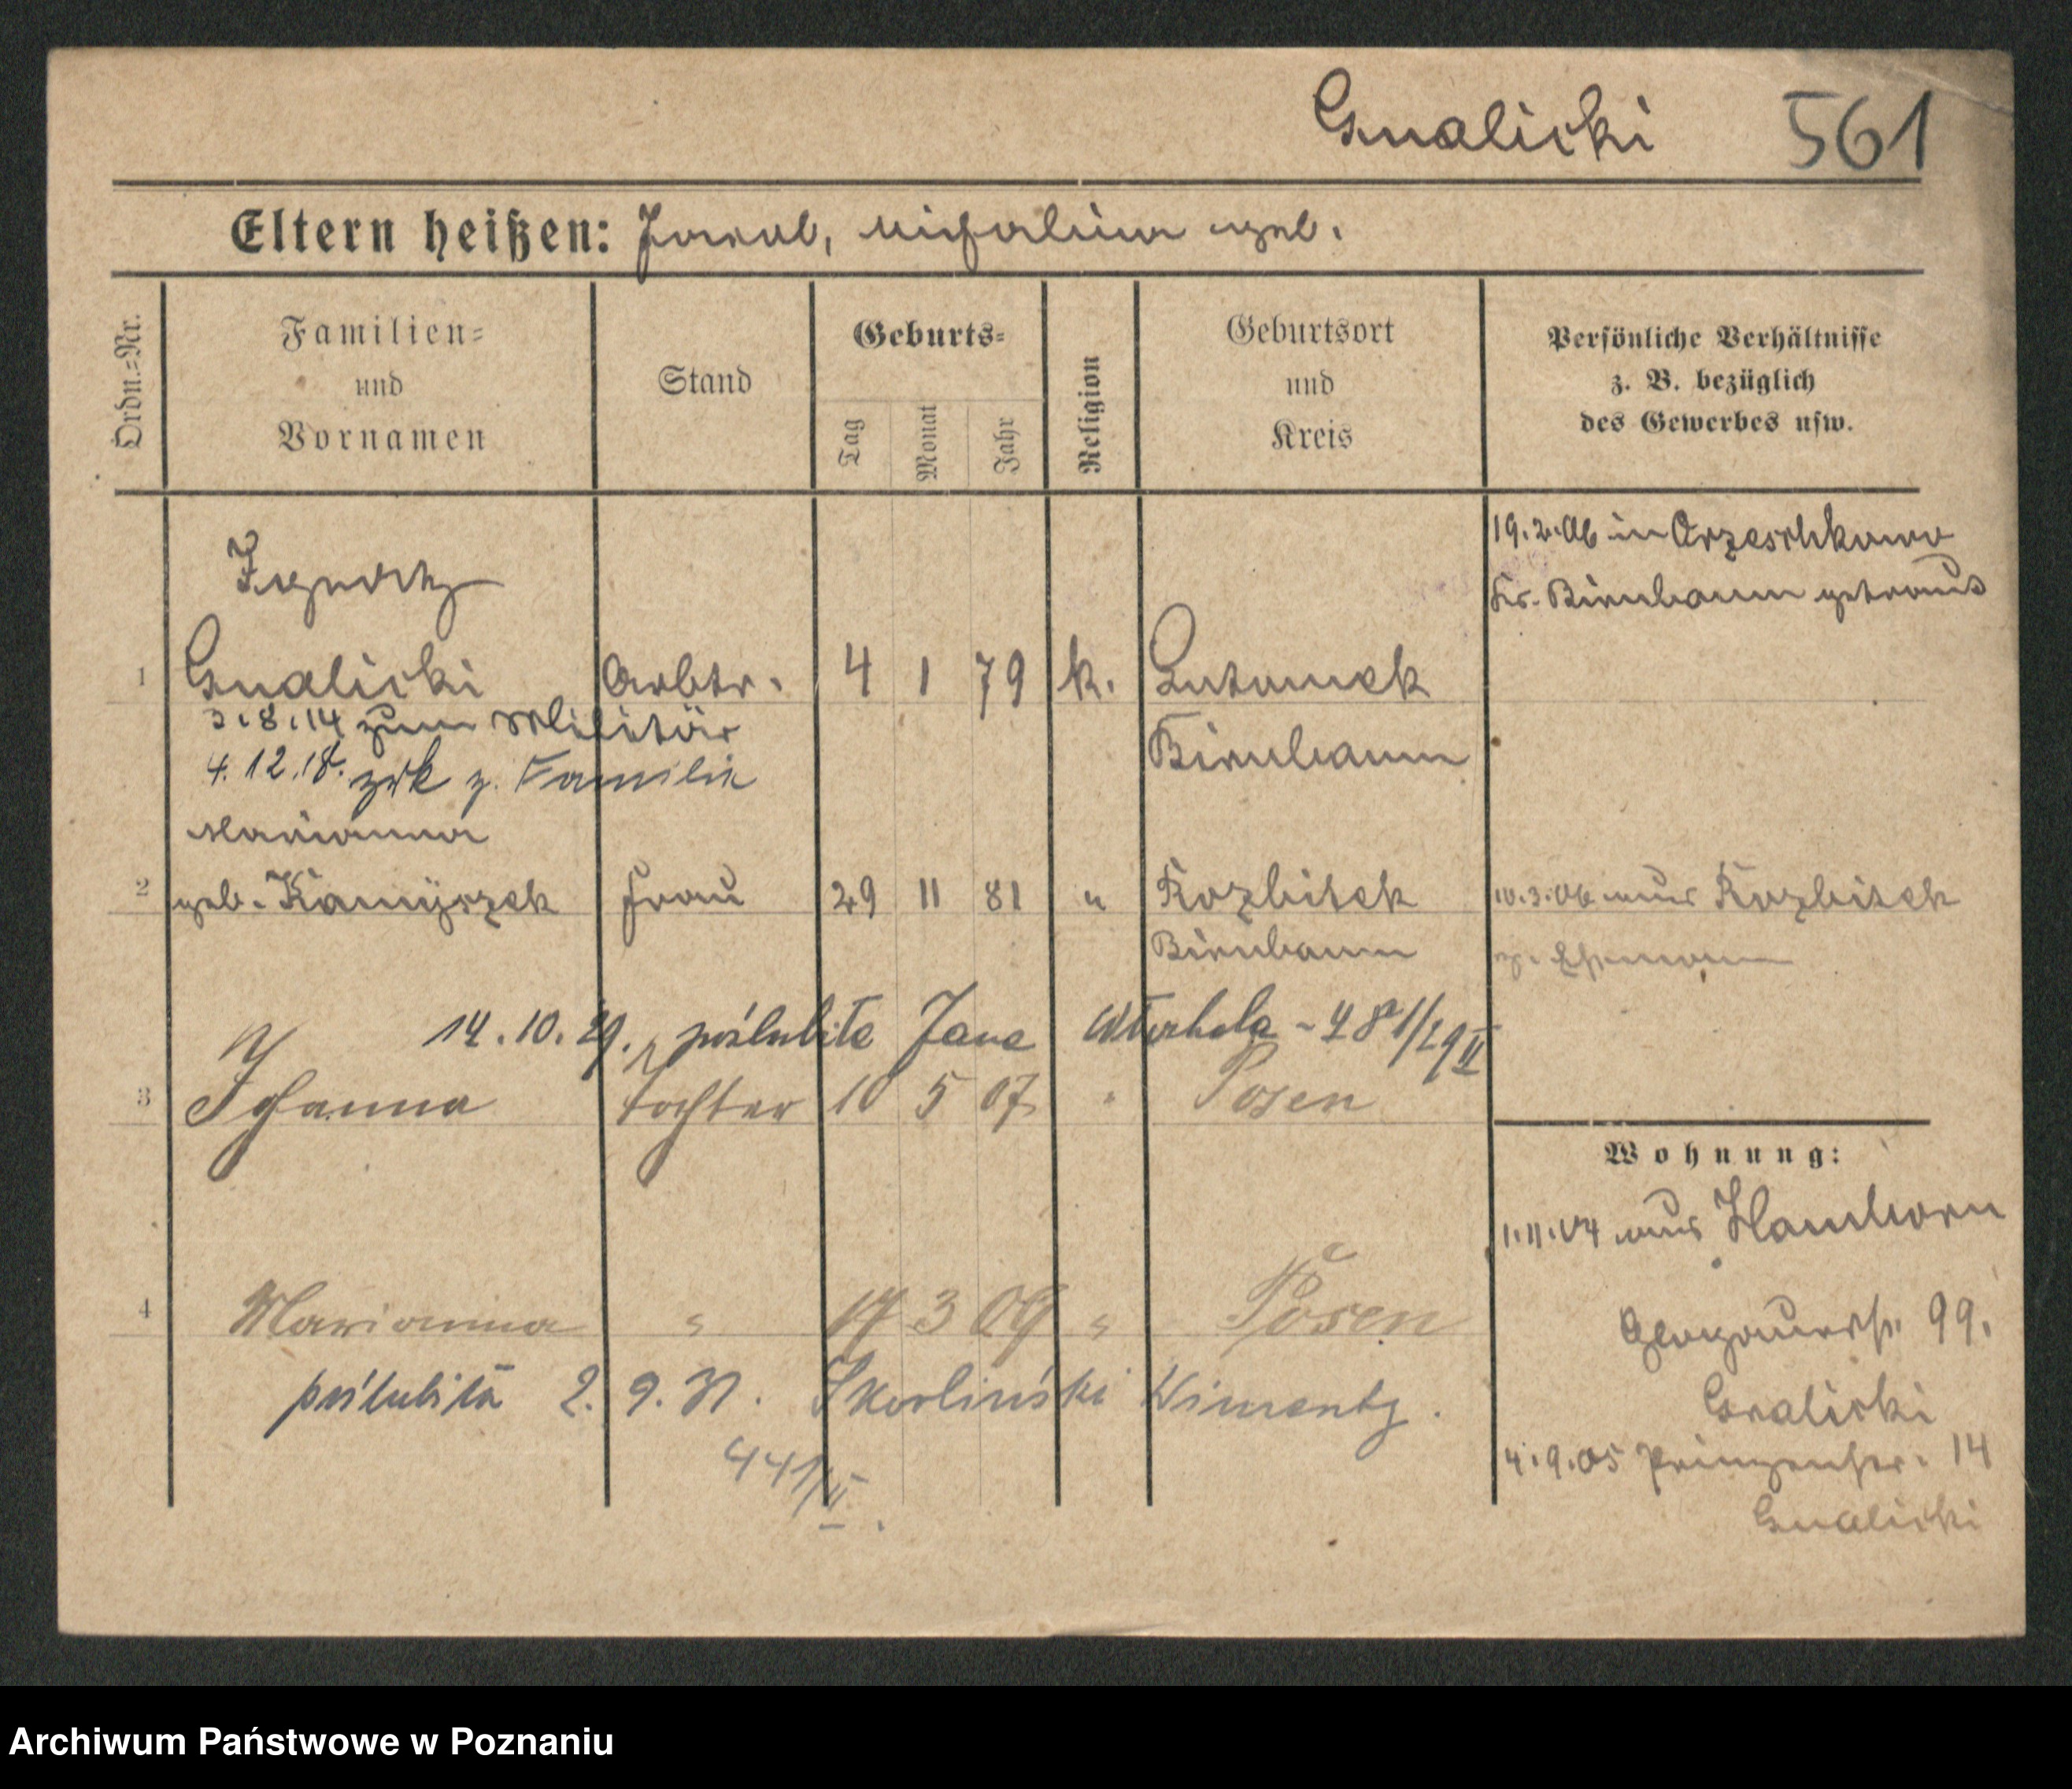 Gualicki 561
Eltern heißen: Jacob, Michalina geb.
Ordn.-Nr.
Familien-
und
Vornamen
Stand
Geburts-
Tag
Monat
Jahr
Religion
Geburtsort
und
Kreis
Persönliche Verhältnisse
z. B. bezüglich
des Gewerbes usw.
19.2.06 in Orzeschkowo
Krs. Birnbaum getraut
Ignatz
1 Gualicki Arbtr. 4 1 79 k. Lutomek
3.8.14 zum Militär
Birnbaum
4.12.18. zrk z. Familie
Marianna
2 geb. Kamyszek Frau 29 11 81 " Kozbitek
10.3.06 aus Kozbitek
Birnbaum
z. Ehemann
14.10.29. poślubiła Jana
3 Johanna Tochter 10 5 07 " Posen
Wohnung:
1.11.04 aus Hamborn
4 Marianna " 17 3 09 " Posen
Glogauerstr. 99.
poślubiła 2.9.31. Skorliński Wincenty.
Gualicki
441/II.
4.9.05 Prinzenstr. 14
Gualicki
Archiwum Państwowe w Poznaniu